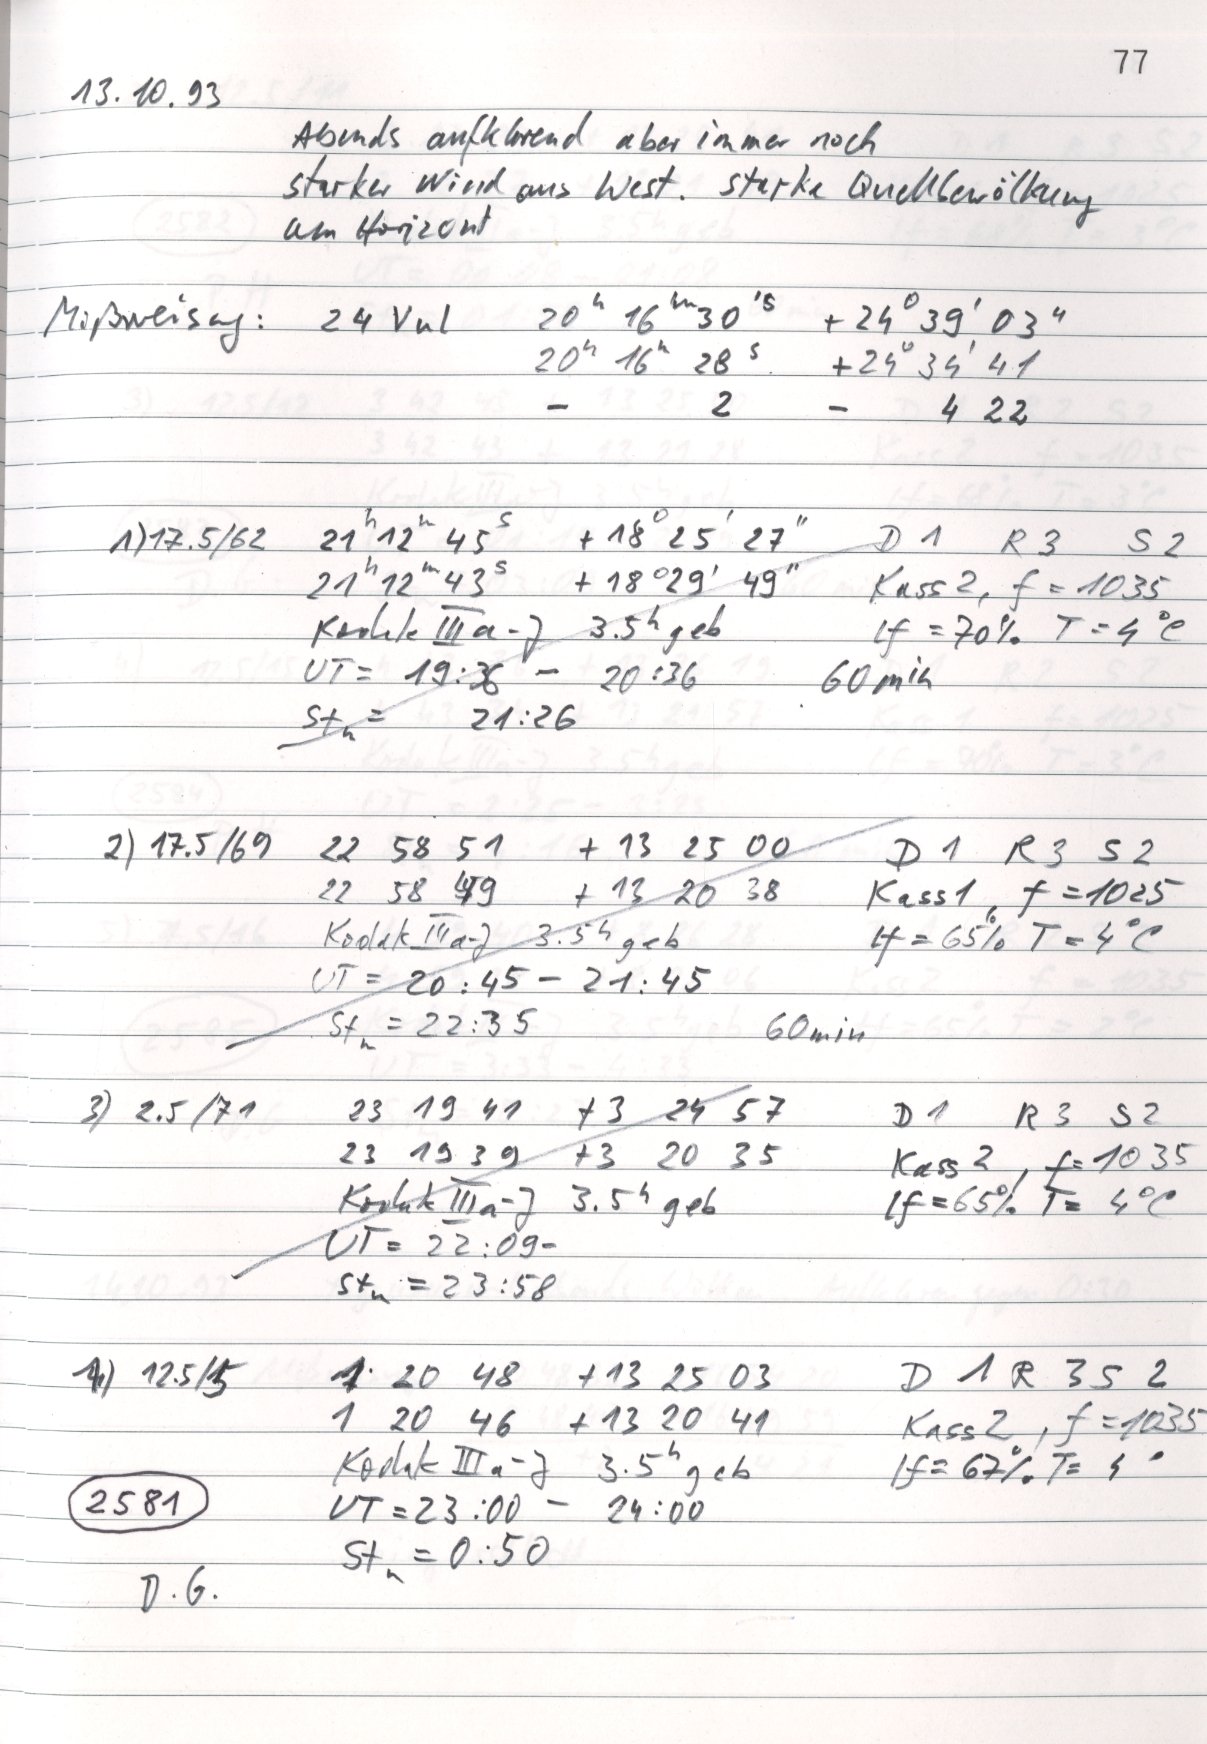 77
13.10.93
Abends aufklarend aber immer noch
starker Wind aus West. Starke Quellbewölkung
am Horizont
Mißweisung: 24 Vul 20h 16m 30s +24° 39' 03"
20h 16m 28s +24° 34' 41
- 2 - 4 22
1) 17.5/62 21h 12m 45s +18° 25' 27" D 1 R 3 S 2
21h 12m 43s +18° 29' 49" Kass 2, f = 1035
Kodak IIIa-J 3.5h geb lf = 70% T = 4°C
UT = 19:36 - 20:36 60 min
Stw = 21:26
2) 17.5/69 22 58 51 +13 25 00 D 1 R 3 S 2
22 58 49 +13 20 38 Kass 1, f = 1025
Kodak IIIa-J 3.5h geb lf = 65% T = 4°C
UT = 20:45 - 21:45
Stw = 22:35 60 min
3) 2.5/71 23 19 41 +3 24 57 D 1 R 3 S 2
23 19 39 +3 20 35 Kass 2, f = 1035
Kodak IIIa-J 3.5h geb lf = 65% T = 4°C
UT = 22:09-
Stw = 23:58
4) 12.5/5 1 20 48 +13 25 03 D 1 R 3 S 2
1 20 46 +13 20 41 Kass 2, f = 1035
Kodak IIIa-J 3.5h geb lf = 67% T = 4°
2581 UT = 23:00 - 24:00
Stw = 0:50
D.G.